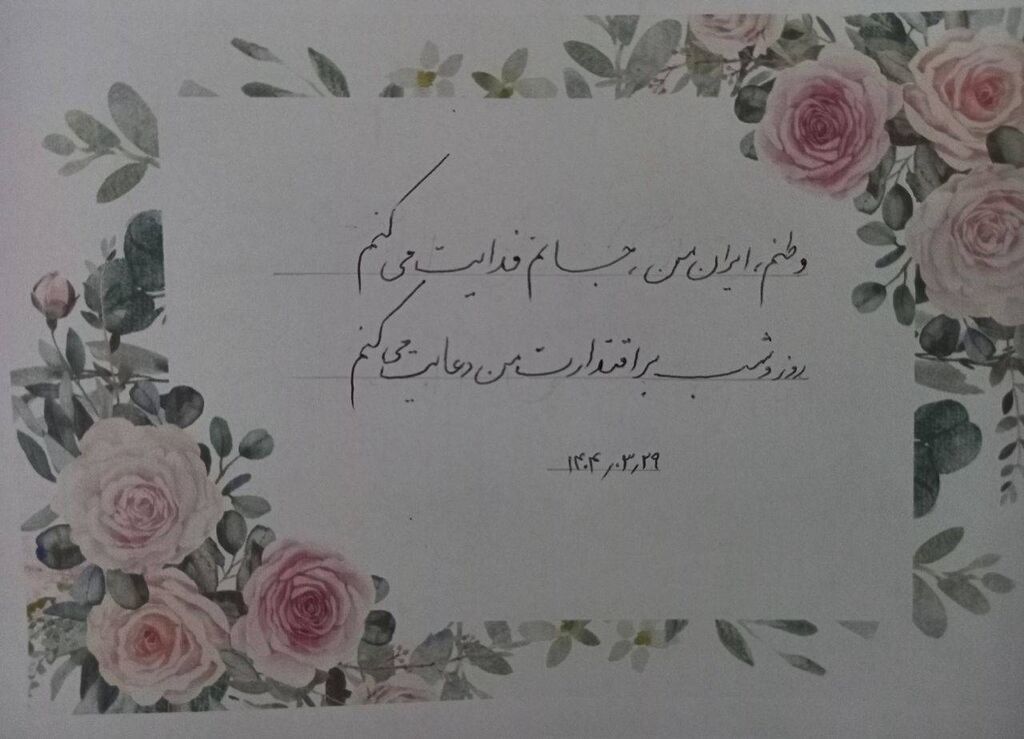 وطنم، ایران من، جانم فدایت می کنم
روز و شب بر اقتدارت من دعایت می کنم
۱۴۰۴٫۰۳٫۲۹